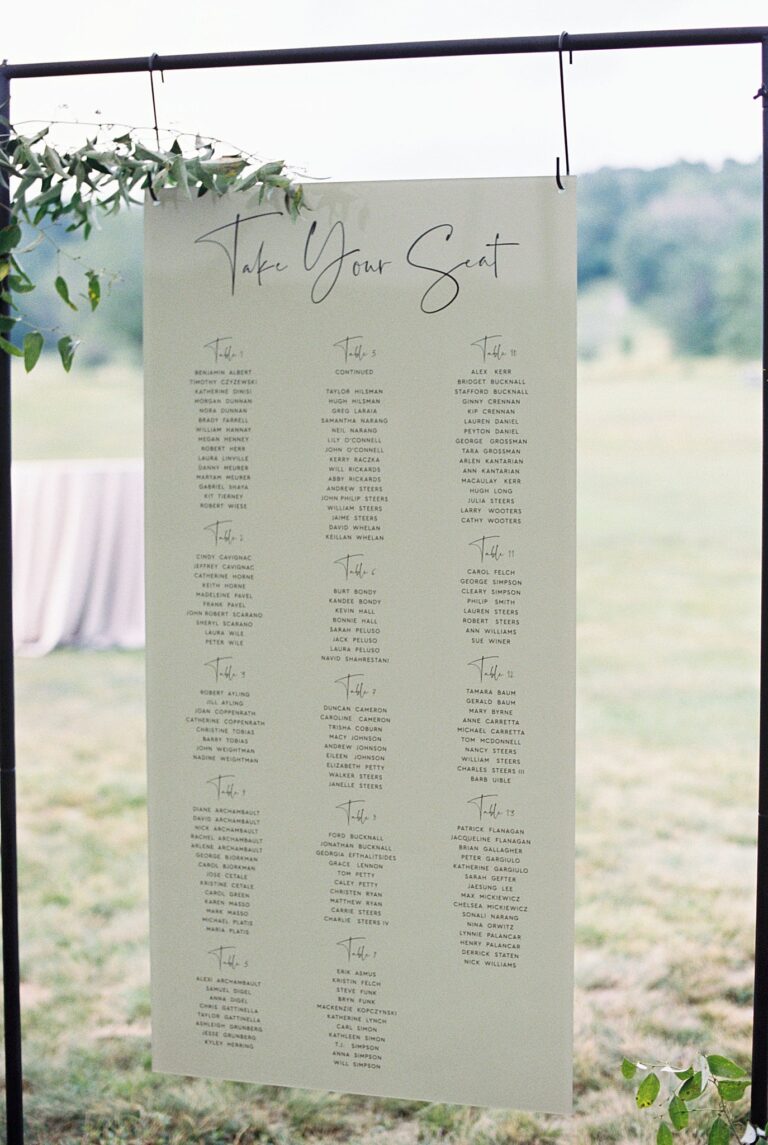 Take Your Seat
Table 1
BENJAMIN ALBERT
TIMOTHY CZYZEWSKI
KATHERINE DINISI
MORGAN DUNNAN
NORA DUNNAN
BRADY FARRELL
WILLIAM HANNAY
MEGAN HENNEY
ROBERT HERR
LAURA LINVILLE
DANNY MEURER
MARYAM MEURER
GABRIEL SHAYA
KIT TIERNEY
ROBERT WIESE
Table 2
CINDY CAVIGNAC
JEFFREY CAVIGNAC
CATHERINE HORNE
KEITH HORNE
MADELEINE PAVEL
FRANK PAVEL
JOHN ROBERT SCARANO
SHERYL SCARANO
LAURA WILE
PETER WILE
Table 3
ROBERT AYLING
JILL AYLING
JOAN COPPENRATH
CATHERINE COPPENRATH
CHRISTINE TOBIAS
BARRY TOBIAS
JOHN WEIGHTMAN
NADINE WEIGHTMAN
Table 4
DIANE ARCHAMBAULT
DAVID ARCHAMBAULT
NICK ARCHAMBAULT
RACHEL ARCHAMBAULT
ARLENE ARCHAMBAULT
GEORGE BJORKMAN
CAROL BJORKMAN
JOSE CETALE
KRISTINE CETALE
CAROL GREEN
KAREN MASSO
MARK MASSO
MICHAEL PLATIS
MARIA PLATIS
Table 5
ALEXI ARCHAMBAULT
SAMUEL DIGEL
ANNA DIGEL
CHRIS GATTINELLA
TAYLOR GATTINELLA
ASHLEIGH GRUNBERG
JESSE GRUNBERG
KYLEY HERRING
Table 5
CONTINUED
TAYLOR HILSMAN
HUGH HILSMAN
GREG LARAIA
SAMANTHA NARANG
NEIL NARANG
LILY O'CONNELL
JOHN O'CONNELL
KERRY RACZKA
WILL RICKARDS
ABBY RICKARDS
ANDREW STEERS
JOHN PHILIP STEERS
WILLIAM STEERS
JAIME STEERS
DAVID WHELAN
KEILLAN WHELAN
Table 6
BURT BONDY
KANDEE BONDY
KEVIN HALL
BONNIE HALL
SARAH PELUSO
JACK PELUSO
LAURA PELUSO
NAVID SHAHRESTANI
Table 7
DUNCAN CAMERON
CAROLINE CAMERON
TRISHA COBURN
MACY JOHNSON
ANDREW JOHNSON
EILEEN JOHNSON
ELIZABETH PETTY
WALKER STEERS
JANELLE STEERS
Table 8
FORD BUCKNALL
JONATHAN BUCKNALL
GEORGIA EFTHALITSIDES
GRACE LENNON
TOM PETTY
CALEY PETTY
CHRISTEN RYAN
MATTHEW RYAN
CARRIE STEERS
CHARLIE STEERS IV
Table 9
ERIK ASMUS
KRISTIN FELCH
STEVE FUNK
BRYN FUNK
MACKENZIE KOPCZYNSKI
KATHERINE LYNCH
CARL SIMON
KATHLEEN SIMON
T.J. SIMPSON
ANNA SIMPSON
WILL SIMPSON
Table 10
ALEX KERR
BRIDGET BUCKNALL
STAFFORD BUCKNALL
GINNY CRENNAN
KIP CRENNAN
LAUREN DANIEL
PEYTON DANIEL
GEORGE GROSSMAN
TARA GROSSMAN
ARLEN KANTARIAN
ANN KANTARIAN
MACAULAY KERR
HUGH LONG
JULIA STEERS
LARRY WOOTERS
CATHY WOOTERS
Table 11
CAROL FELCH
GEORGE SIMPSON
CLEARY SIMPSON
PHILIP SMITH
LAUREN STEERS
ROBERT STEERS
ANN WILLIAMS
SUE WINER
Table 12
TAMARA BAUM
GERALD BAUM
MARY BYRNE
ANNE CARRETTA
MICHAEL CARRETTA
TOM MCDONNELL
NANCY STEERS
WILLIAM STEERS
CHARLES STEERS III
BARB UIBLE
Table 13
PATRICK FLANAGAN
JACQUELINE FLANAGAN
BRIAN GALLAGHER
PETER GARGIULO
KATHERINE GARGIULO
SARAH GEFTER
JAESUNG LEE
MAX MICKIEWICZ
CHELSEA MICKIEWICZ
SONALI NARANG
NINA ORWITZ
LYNNIE PALANCAR
HENRY PALANCAR
DERRICK STATEN
NICK WILLIAMS